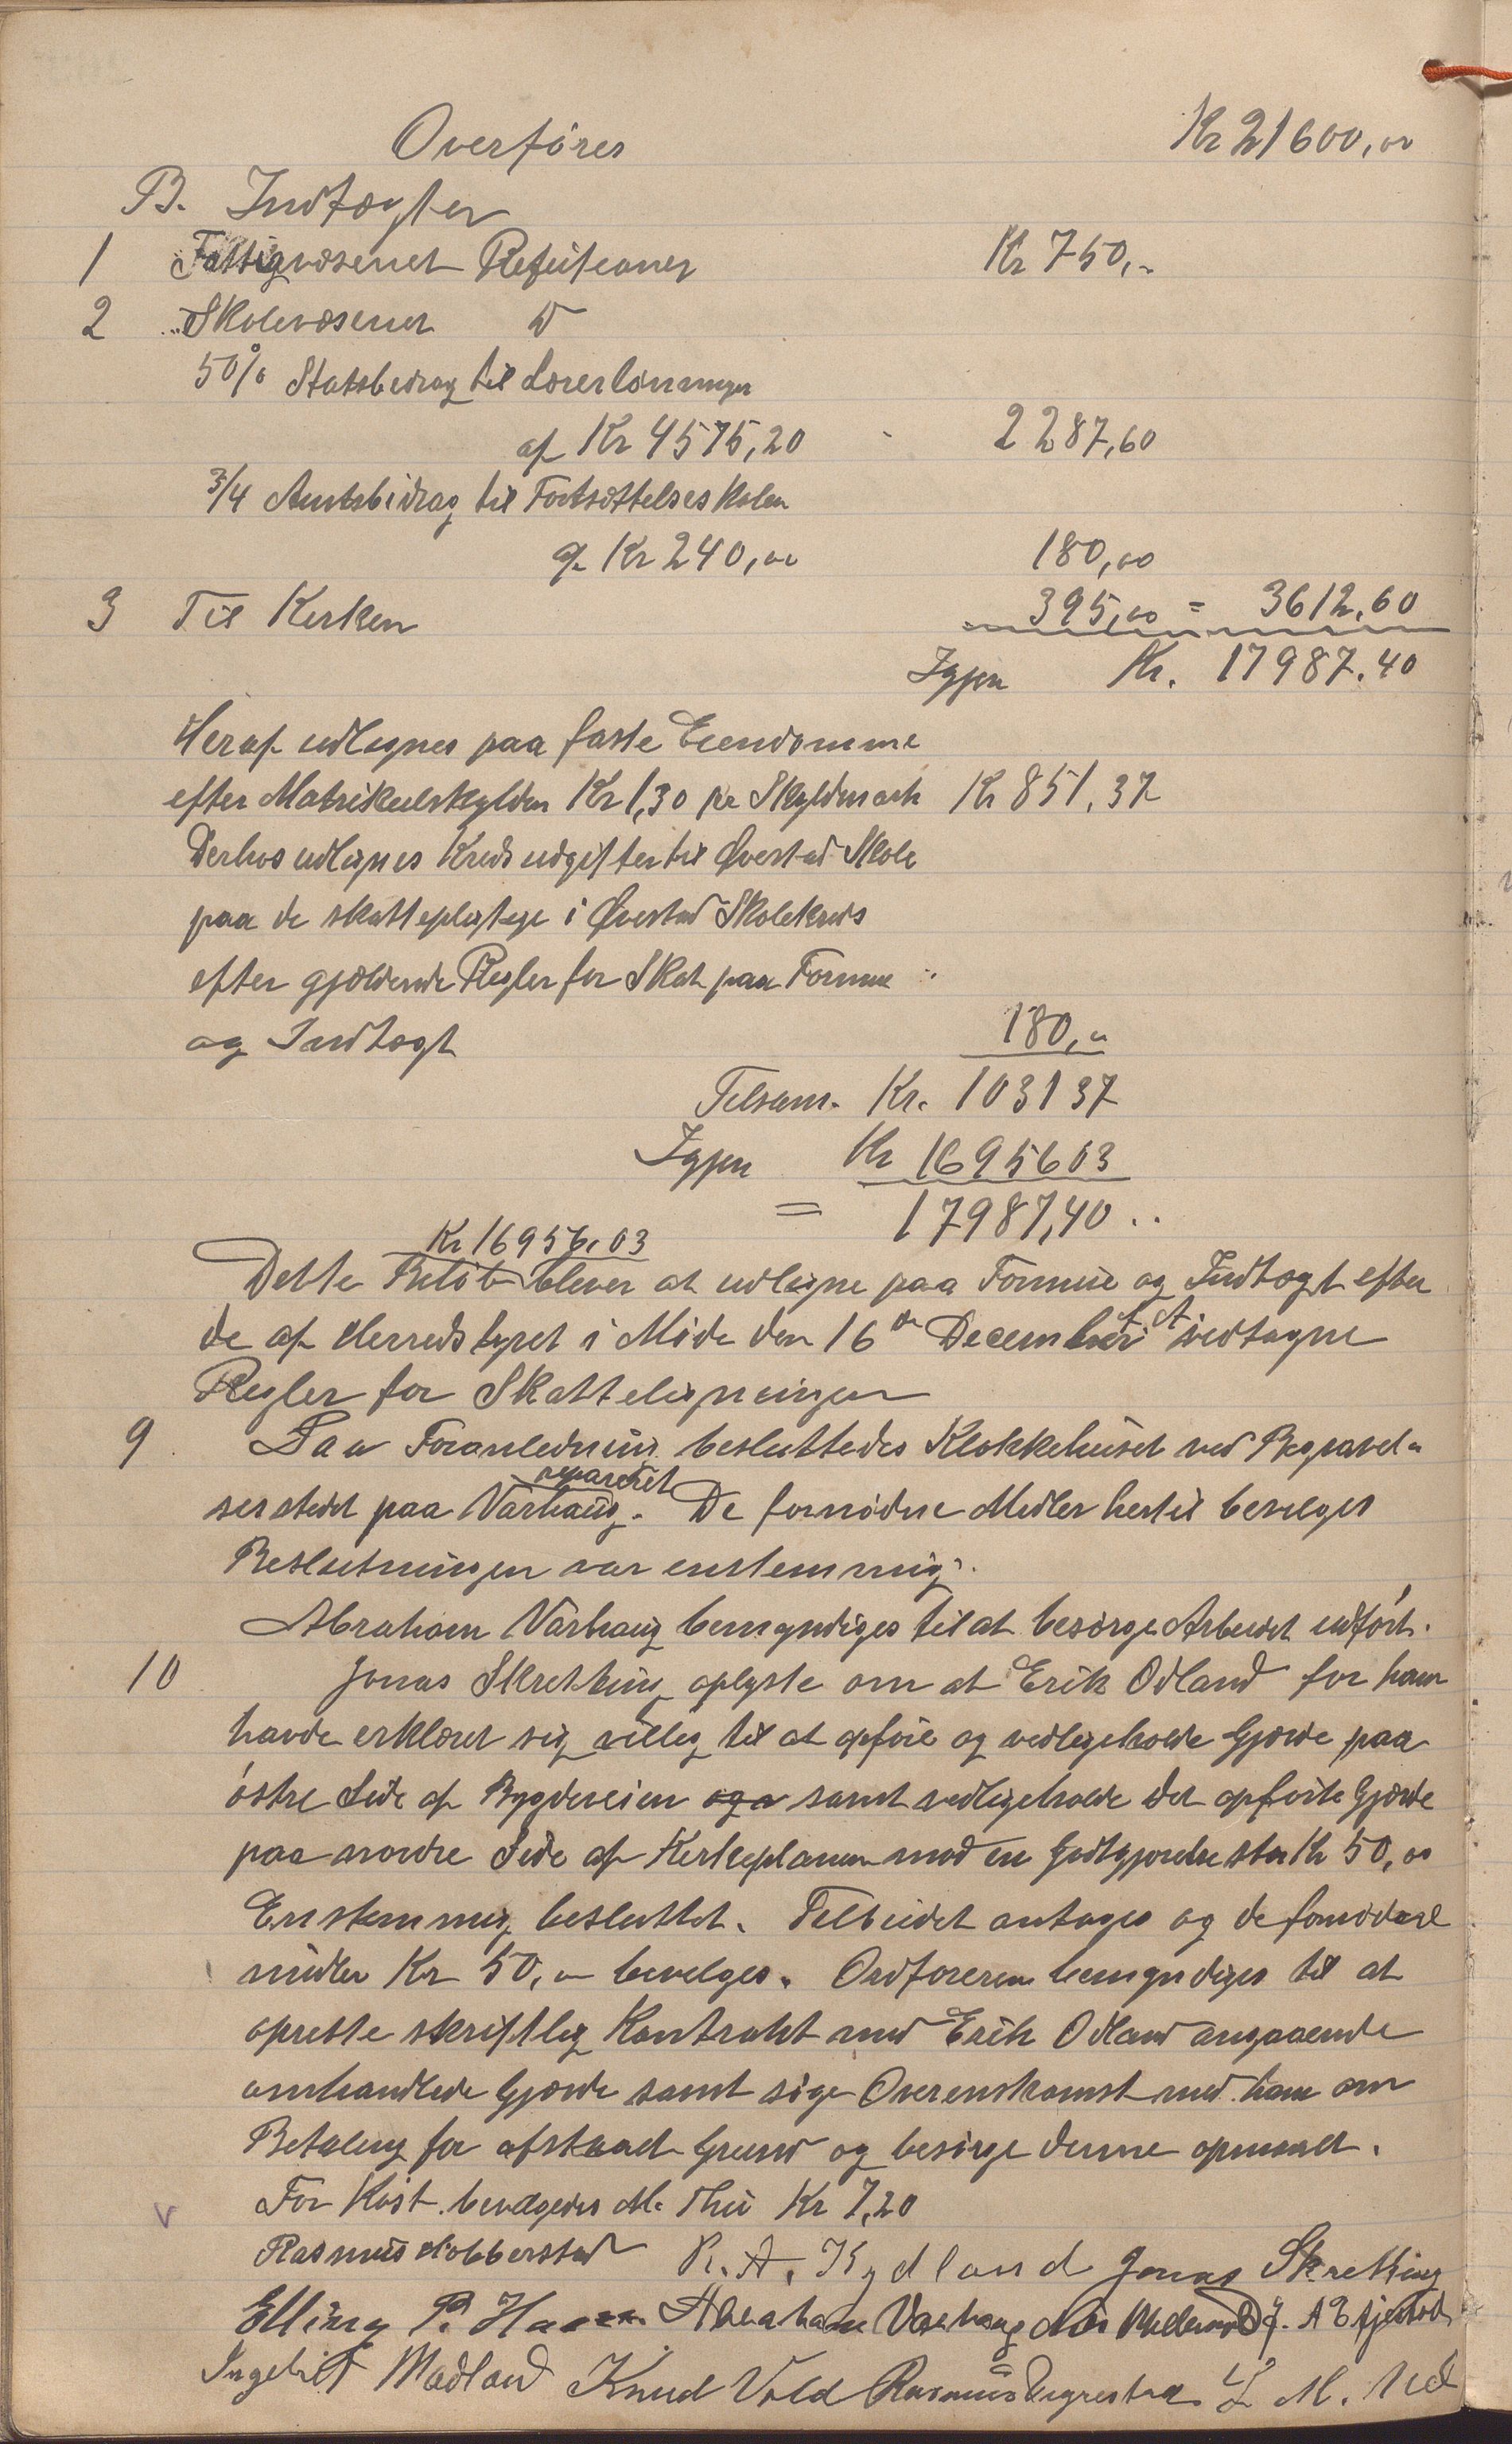 Overføres Kr 21600,00
B. Indtægter
1 Fattigvæsenet Refusioner Kr 750,-
2 Skolevæsenet D
50% Statsbidrag til Lærerlønninger
af Kr 4575,20 2287,60
3/4 Amtsbidrag til Fortsættelsesskolen
af Kr 240,00 180,00
3 Til Kirken 395,00 = 3612.60
Igjen Kr. 17987.40
Heraf udlignes paa faste Eiendomme
efter Matrikulskylden Kr 1,30 pr Skyldmark Kr 851,37
Derhos udlignes Kredsudgifter til Øvestad Skole
paa de skattepligtige i Øvestad Skolekreds
efter gjældende Regler for Skat paa Formue
og Indtægt 180,00
Tilsam. Kr. 1031 37
Igjen Kr 16956 03
= 17987,40
Kr 16956,03
Dette Beløb bliver at udligne paa Formue og Indtægt efter
de af Herredstyret i Møde den 16de December vedtagne
Regler for Skatteligningen
9 Paa Foranledning besluttedes Klokkehuset ved Begravel-
sesstedet paa Varhaug repareret. De fornødne Midler hertil bevilges
Beslutningen var enstemmig.
Abraham Varhaug bemyndiges til at besørge Arbeidet udført.
10 Jonas Skretting oplyste om at Erik Odland for ham
havde erklæret sig villig til at opføre og vedligeholde Gjærde paa
østre Side af Bygdeveien samt vedligeholde det opførte Gjærde
paa nordre Side af Kirkeplanen mod en Godtgjørelse stor Kr 50,00
Enstemmig besluttet. Tilbudet antages og de fornødne
midler Kr 50,00 bevilges. Ordføreren bemyndiges til at
oprette skriftlig Kontrakt med Erik Odland angaaende
omhandlede Gjærde samt søge Overenskomst med ham om
Betaling for afstaaet Grund og besørge denne opmaalt.
For Kost bevilgedes M. Thu Kr 7,20
Rasmus Hobberstad R. A. Kydland Jonas Skretting
Elling P. Haar Abraham Varhaug
Ingebret Madland Knud Vold Rasmus